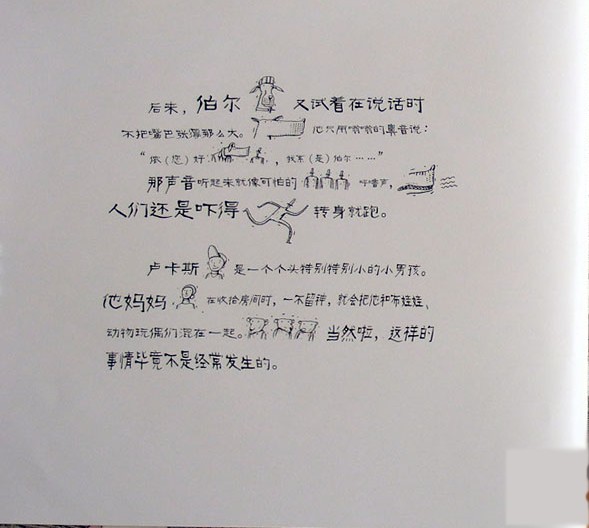 后来，伯尔 又试着在说话时
不把嘴巴张得那么大。 他只用嗡嗡的鼻音说：
“浓（您）好 ，我系（是）伯尔……”
那声音听起来就像可怕的 呼噜声，
人们还是吓得 转身就跑。
卢卡斯 是一个个头特别特别小的小男孩。
他妈妈 在收拾房间时，一不留神，就会把他和布娃娃、
动物玩偶们混在一起。 当然啦，这样的
事情毕竟不是经常发生的。